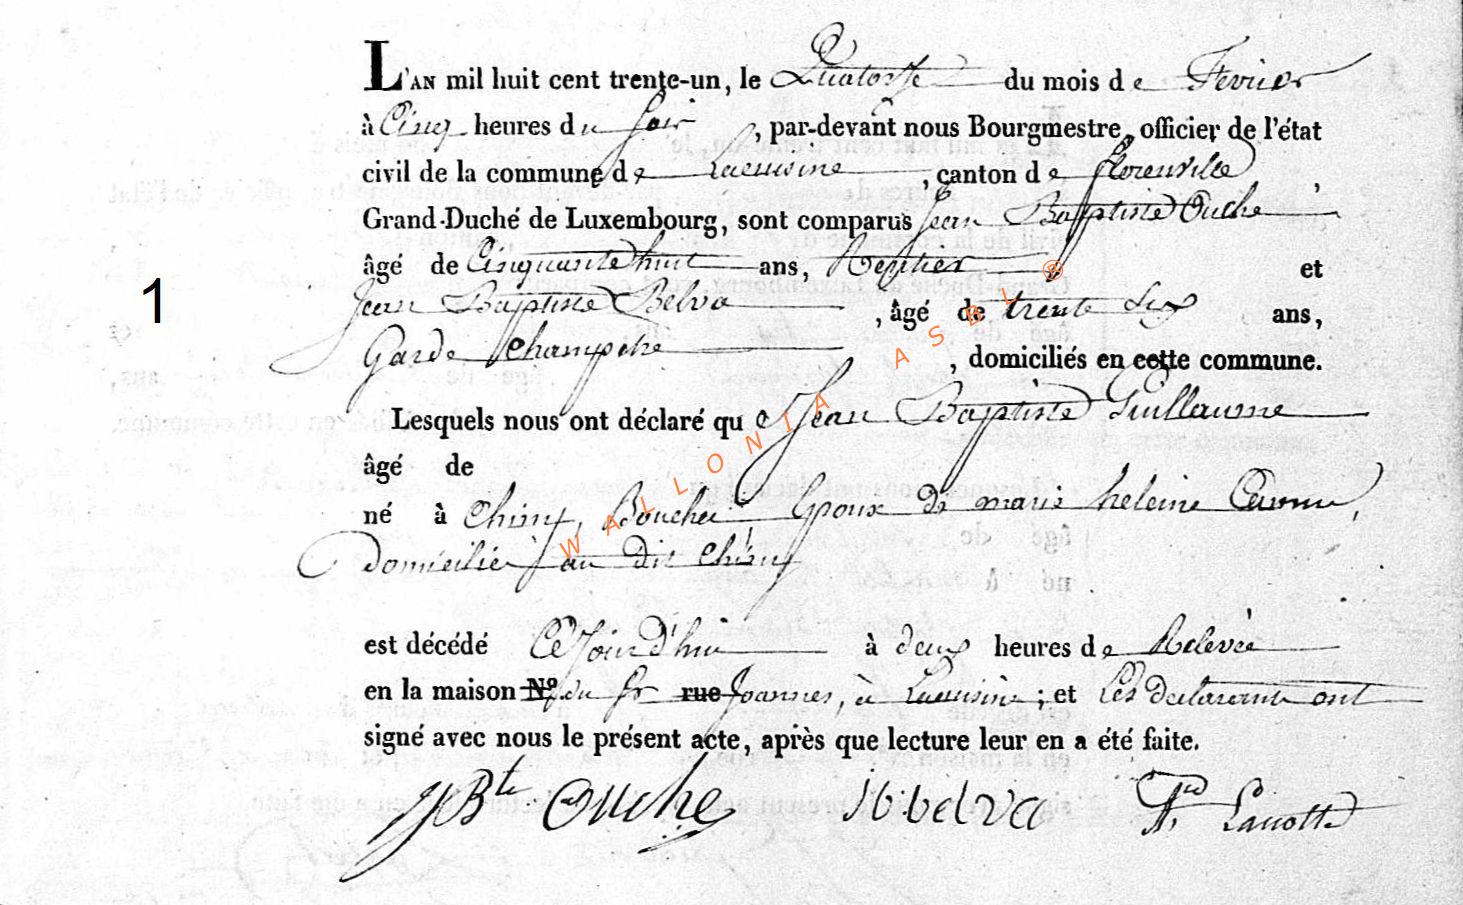 L'AN mil huit cent trente-un, le Quatorse du mois de Fevrier
à Cinq heures du soir, par-devant nous Bourgmestre, officier de l'état
civil de la commune de Lacuisine, canton de florenville,
Grand-Duché de Luxembourg, sont comparus Jean Baptiste Ouche
âgé de Cinquante huit ans, Rentier et
1
Jean Baptiste Belva, âgé de trente six ans,
Garde Champetre, domiciliés en cette commune.
Lesquels nous ont déclaré que Jean Baptiste Guillaume
âgé de
né à Chiny, Boucher Epoux de marie heleine
Domicilié au dit Chiny
est décédé Cejourd'hui à deux heures de Relevée
en la maison N° du Sr rue Joannes, à Lacuisine; et Les declarants ont
signé avec nous le présent acte, après que lecture leur en a été faite.
JBte Ouche Jb belva Lanotte
WALLONIA ASBL ®